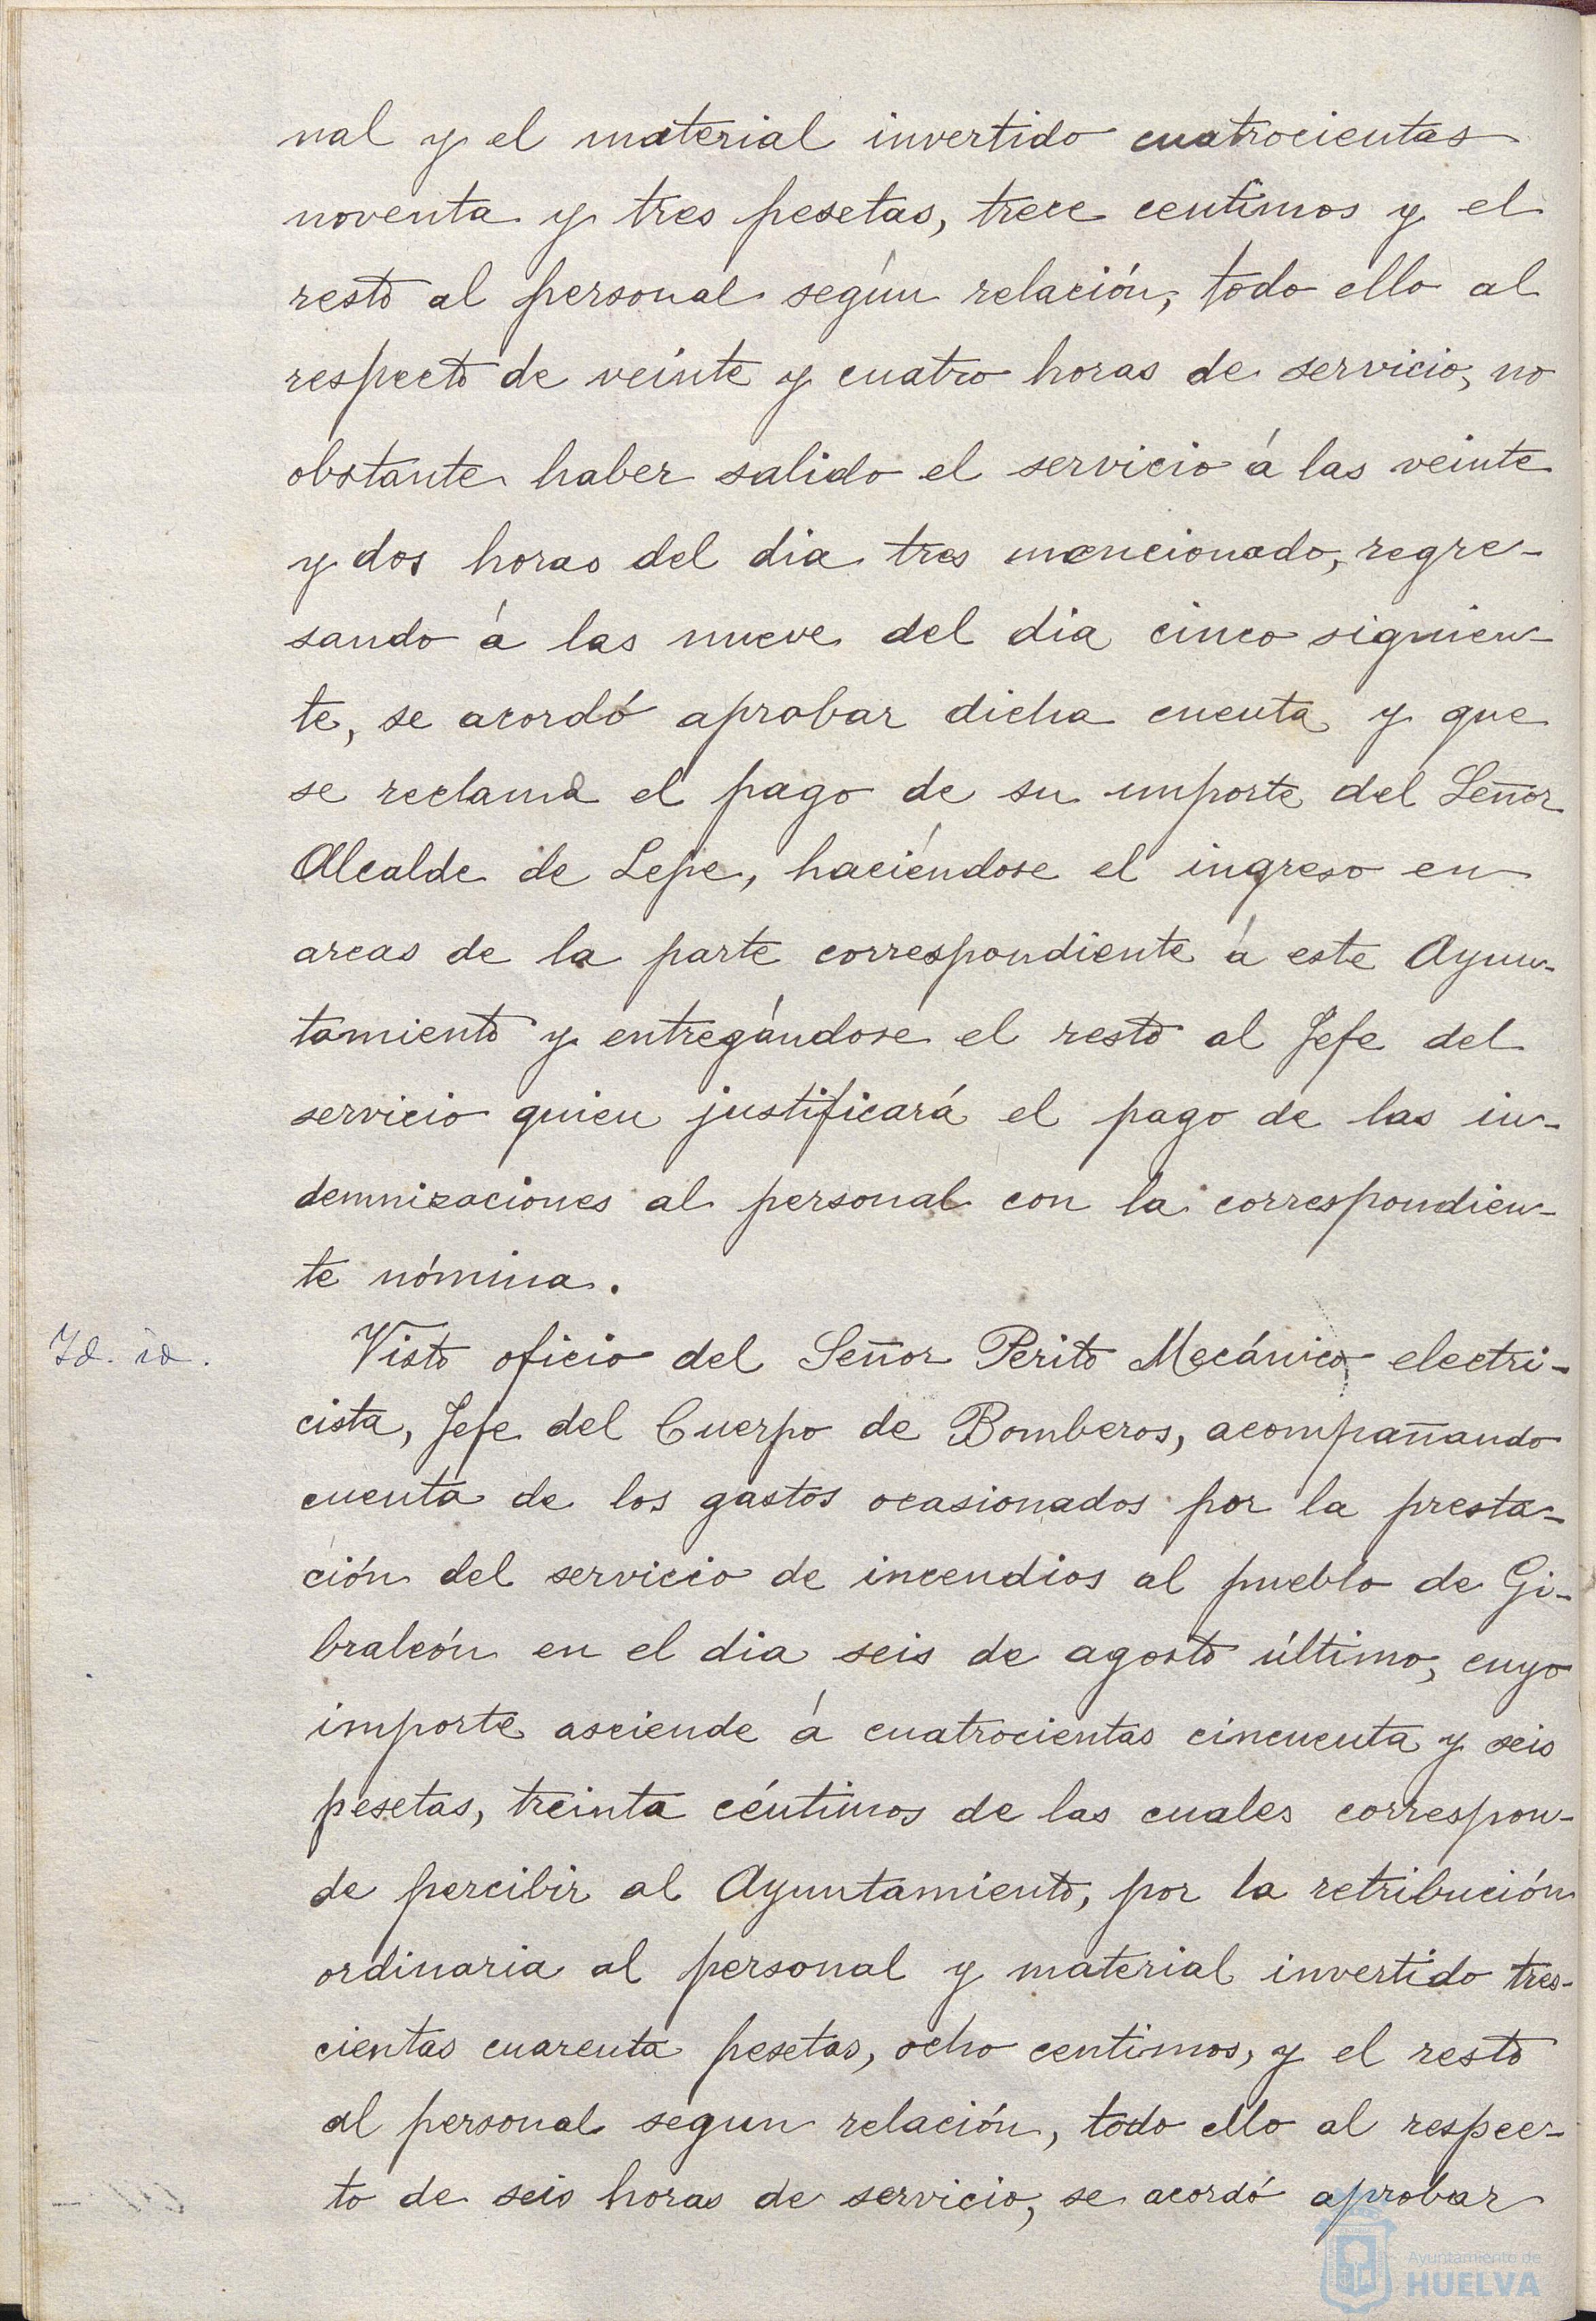 nal y el material invertido cuatrocientas
noventa y tres pesetas, trece centimos y el
resto al personal según relación, todo ello al
respecto de veinte y cuatro horas de servicio, no
obstante haber salido el servicio á las veinte
y dos horas del dia tres mencionado, regre-
sando á las nueve del dia cinco siguien-
te, se acordó aprobar dicha cuenta y que
se reclama el pago de su importe del Señor
Alcalde de Lepe, haciéndose el ingreso en
arcas de la parte correspondiente á este Ayun-
tamiento y entregándose el resto al Jefe del
servicio quien justificará el pago de las in-
demnizaciones al personal con la correspondien-
te nómina.
Id. id. Visto oficio del Señor Perito Mecánico electri-
cista, Jefe del Cuerpo de Bomberos, acompañando
cuenta de los gastos ocasionados por la presta-
ción del servicio de incendios al pueblo de Gi-
braleón en el dia seis de agosto último, cuyo
importe asciende á cuatrocientas cincuenta y seis
pesetas, treinta céntimos de las cuales correspon-
de percibir al Ayuntamiento, por la retribución
ordinaria al personal y material invertido tres-
cientas cuarenta pesetas, ocho centimos, y el resto
al personal segun relación, todo ello al respec-
to de seis horas de servicio, se acordó aprobar
Ayuntamiento de
HUELVA